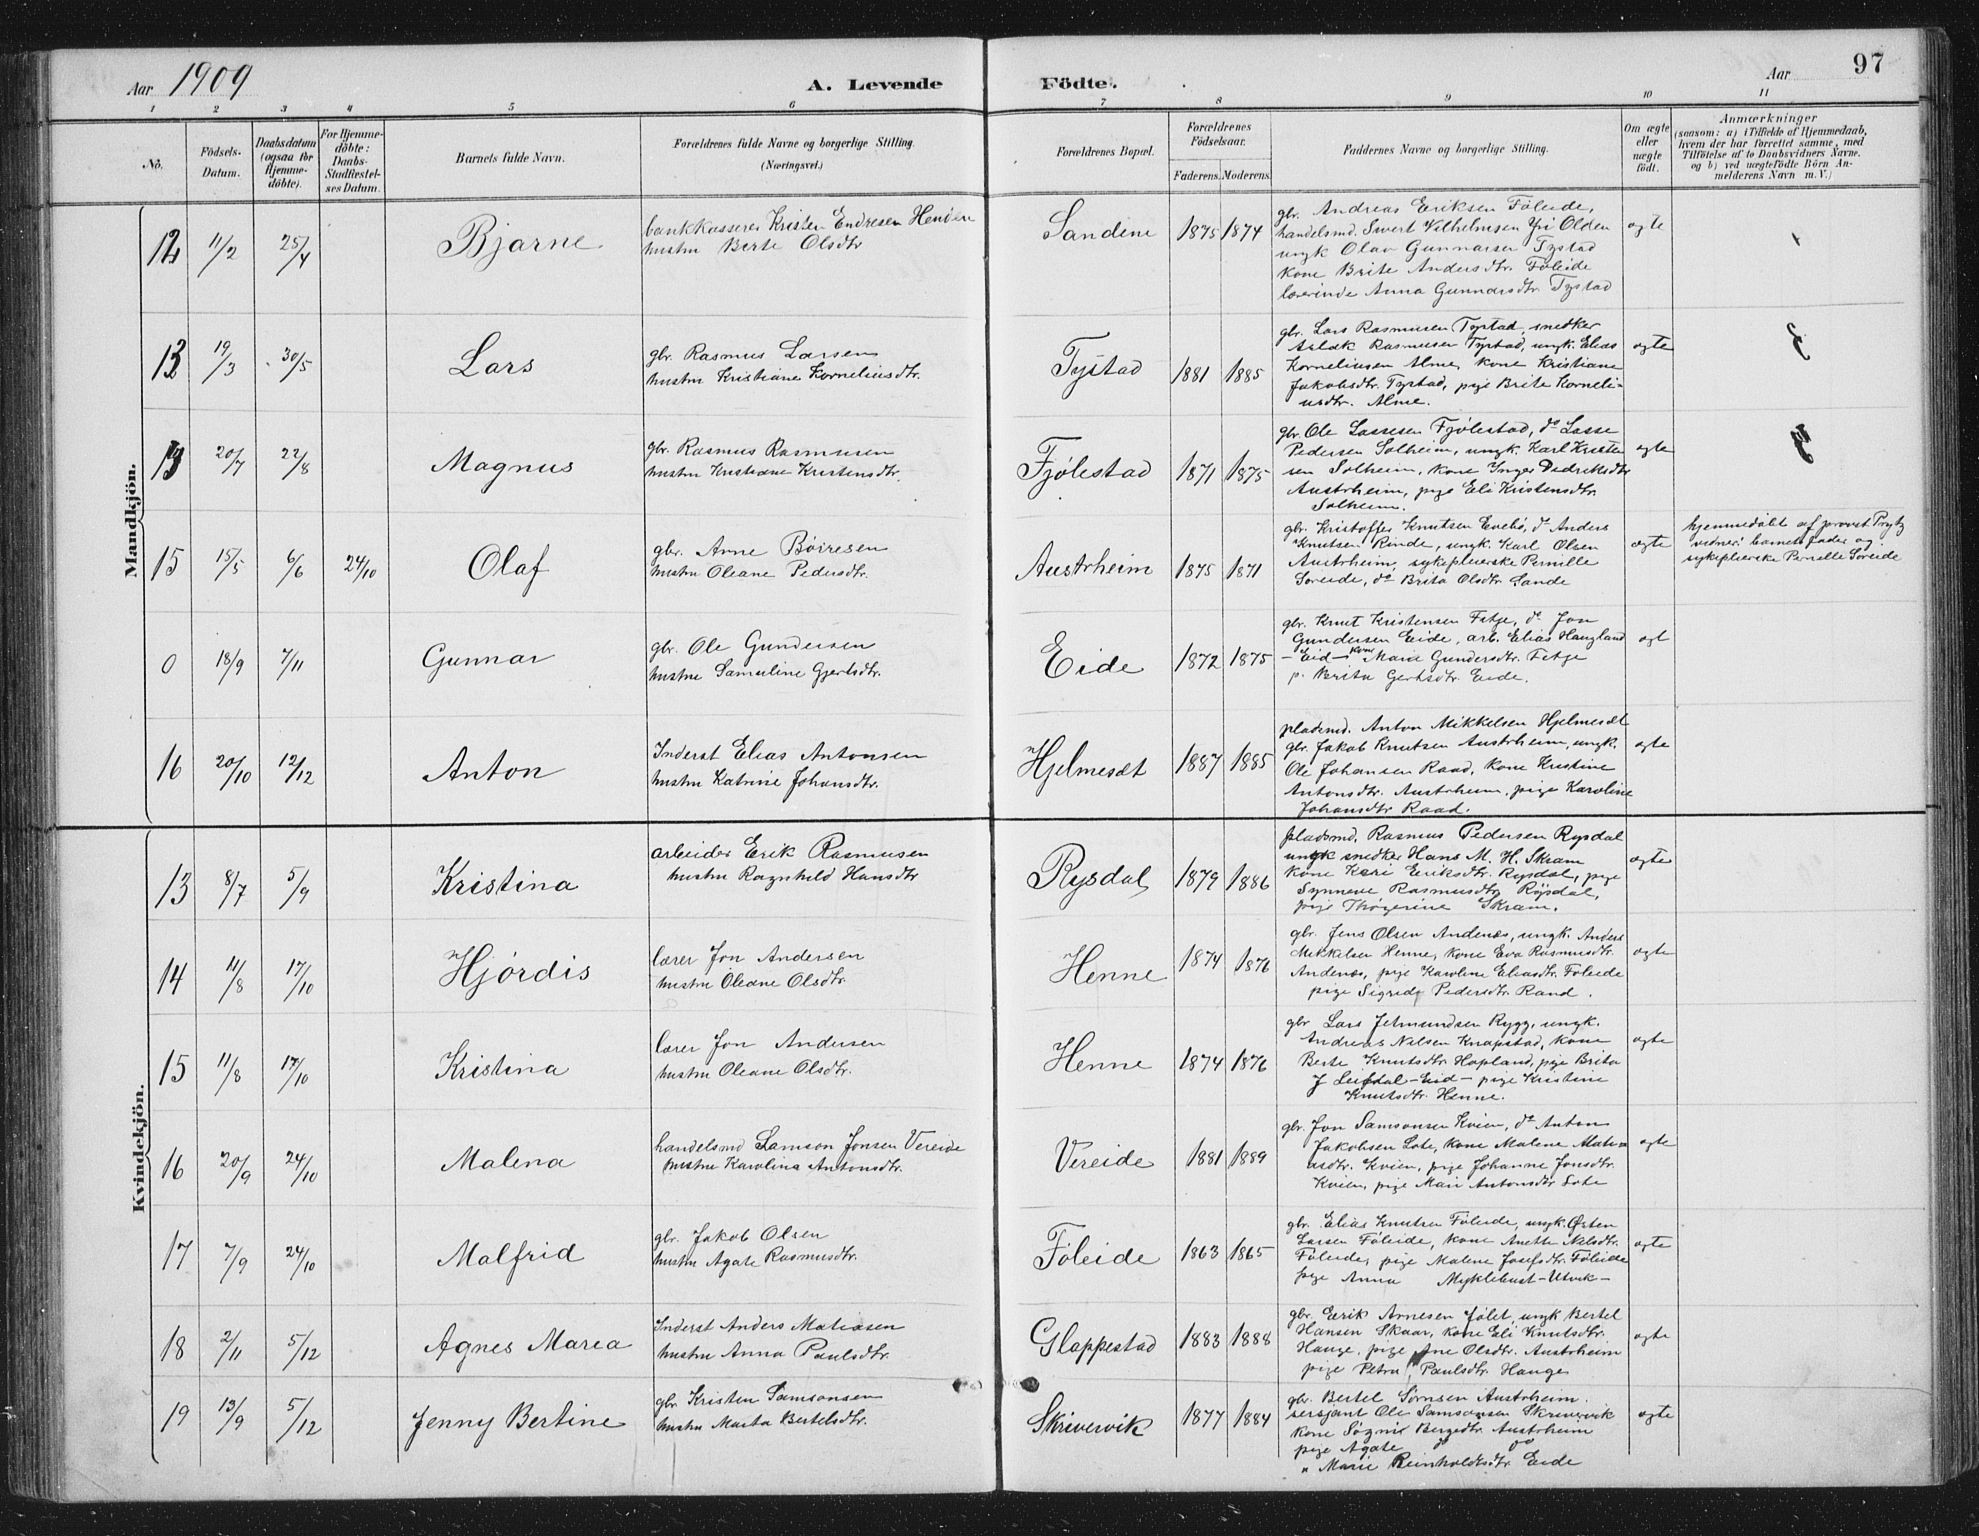 Aar 1909
A. Levende Födte.
Aar
97
1 2 3 4 5 6 7 8 9 10 11
No.
Födsels-Datum.
Daabsdatum (ogsaa för Hjemme-döbte).
For Hjemme-döbte: Daabs-Stadfæstel-ses Datum.
Barnets fulde Navn.
Forældrenes fulde Navne og borgerlige Stilling. (Næringsvei.)
Forældrenes Bopæl.
Forældrenes Födselsaar.
Faderens. Moderens.
Faddernes Navne og borgerlige Stilling.
Om ægte eller uægte födt.
Anmærkninger
(saasom: a) i Tilfælde af Hjemmedaab,
hvem der har forrettet samme, med
Tilföielse af to Daabsvidners Navne.
og b) ved uægtefödte Börn An-
melderens Navn m. V.)
Mandkjön.
12 11/2 25/4 Bjarne
bankkasserer Kristen Endresen Henden
hustru Berte Olsdtr
Sandene 1875 1874
gbr. Andreas Eriksen Föleide,
handelsmd. Sivert Vilhelmsen Yri Olden
ungk Olav Gunnarsen Tystad
kone Brite Andersdtr. Föleide
lærerinde Anna Gunnarsdtr Tystad
ægte
13 19/3 30/5 Lars
gbr. Rasmus Larsen
hustru Kristiane Korneliusdtr.
Tystad 1881 1885
gbr. Lars Rasmusen Tystad, snedker
Aslak Rasmusen Tystad, ungk. Elias
Korneliusen Alme, kone Kristiane
Jakobsdtr. Tystad, pige Brite Korneli-
usdtr. Alme.
ægte
20/7 22/8 Magnus
gbr. Rasmus Rasmusen
hustru Kristiane Kristensdtr.
Fjølestad 1871 1875
gbr. Ole Lassesen Fjølestad, do Lasse
Pedersen Solheim, ungk. Karl Kristen
sen Solheim, kone Inger Didriksdtr
Austrheim, pige Eli Kristensdtr.
Solheim.
ægte
15 15/5 6/6 24/10 Olaf
gbr. Arne Börresen
hustru Oleane Pedersdtr.
Austrheim 1875 1871
gbr. Kristoffer Knutsen Evebø, do Anders
Knutsen Rinde, ungk. Karl Olsen
Austrheim, sykepleierske Pernille
Soreide, do Brita Olsdtr Sande
ægte
hjemmedøbt af provst Prytz
vidner: barnets fader og
sykepleierske Pernille Soreide
0 18/9 7/11 Gunnar
gbr. Ole Gundersen
hustru Samuline Gjertsdtr.
Eide 1872 1875
gbr. Knut Kristensen Fitje, do Jon
Gundersen Eide, arb. Elias Haugland
- Eid - kone Marie Gundersdtr. Fitje
p. Brita Gertsdtr. Eide.
ægt
16 20/10 12/12 Anton
Inderst Elias Antonsen
hustru Katrine Johansdtr.
Hjelmesæt 1887 1885
pladsmd. Anton Mikkelsen Hjelmesæt
gbr. Jakob Knutsen Austrheim, ungk.
Ole Johansen Raad, kone Kristine
Antonsdtr. Austrheim, pige Karoline
Johansdtr Raad.
ægte
Kvindekjön.
13 8/7 5/9 Kristina
arbeider Erik Rasmusen
hustru Ragnhild Hansdtr
Rysdal 1879 1886
pladsmd. Rasmus Pedersen Rysdal
ungk snedker Hans M. H. Skram
kone Kari Eriksdtr. Rysdal, pige
Synneve Rasmusdtr Röysdal,
pige Thögerine Skram.
ægte
14 11/8 17/10 Hjördis
lærer Jon Andersen
hustru Oleane Olsdtr.
Henne 1874 1876
gbr. Jens Olsen Andenæs, ungk. Anders
Mikkelsen Henne, kone Eva Rasmusdtr.
Andenæs, pige Karoline Eliasdtr. Föleide
pige Sigrid Pedersdtr Rand.
ægte
15 11/8 17/10 Kristina
lærer Jon Andersen
hustru Oleane Olsdtr.
Henne 1874 1876
gbr Lars Jetmundsen Rygg, ungk.
Andreas Nilsen Knapstad, kone
Berte Knutsdtr. Hopland, pige Brita
J Leifdal - Eid - pige Kristine
Knutsdtr. Henne.
ægte
16 20/9 24/10 Malena
handelsmd Samson Jonsen Vereide
hustru Karolina Antonsdtr.
Vereide 1881 1889
gbr. Jon Samsonsen Kvien, do Anton
Jakobsen Lote, kone Malene Mati-
asdtr. Kvien, pige Johanne Jonsdtr.
Kvien, pige Mari Antonsdtr Lote
ægte
17 7/9 24/10 Malfrid
gbr. Jakob Olsen
hustru Agate Rasmusdtr.
Föleide 1863 1865
gbr. Elias Knutsen Föleide, ungk. Østen
Larsen Föleide, kone Anette Nilsdtr.
Föleide, pige Malene Josefsdtr. Föleide
pige Anna Myklebust - Utvik -
ægte
18 2/11 5/12 Agnes Marea
Inderst Anders Matiasen
hustru Anna Paulsdtr.
Glappestad 1883 1888
gbr. Eerik Arnesen Jölet, ungk Bertel
Hansen Skaar, kone Eli Knutsdtr.
Hauge, pige Ane Olsdtr. Austrheim
pige Petra Paulsdtr. Hauge
ægte
19 13/9 5/12 Jenny Bertine
gbr. Kristen Samsonsen
hustru Marta Bertelsdtr.
Skrivervik 1877 1884
gbr. Bertel Sørnsen Austrheim.
sersjant Ole Samsonsen Skrivervik
kone Søgni Bergedtr. Austrheim
pige Agate do do
" Marie Reinholdtsdtr Eide
ægte